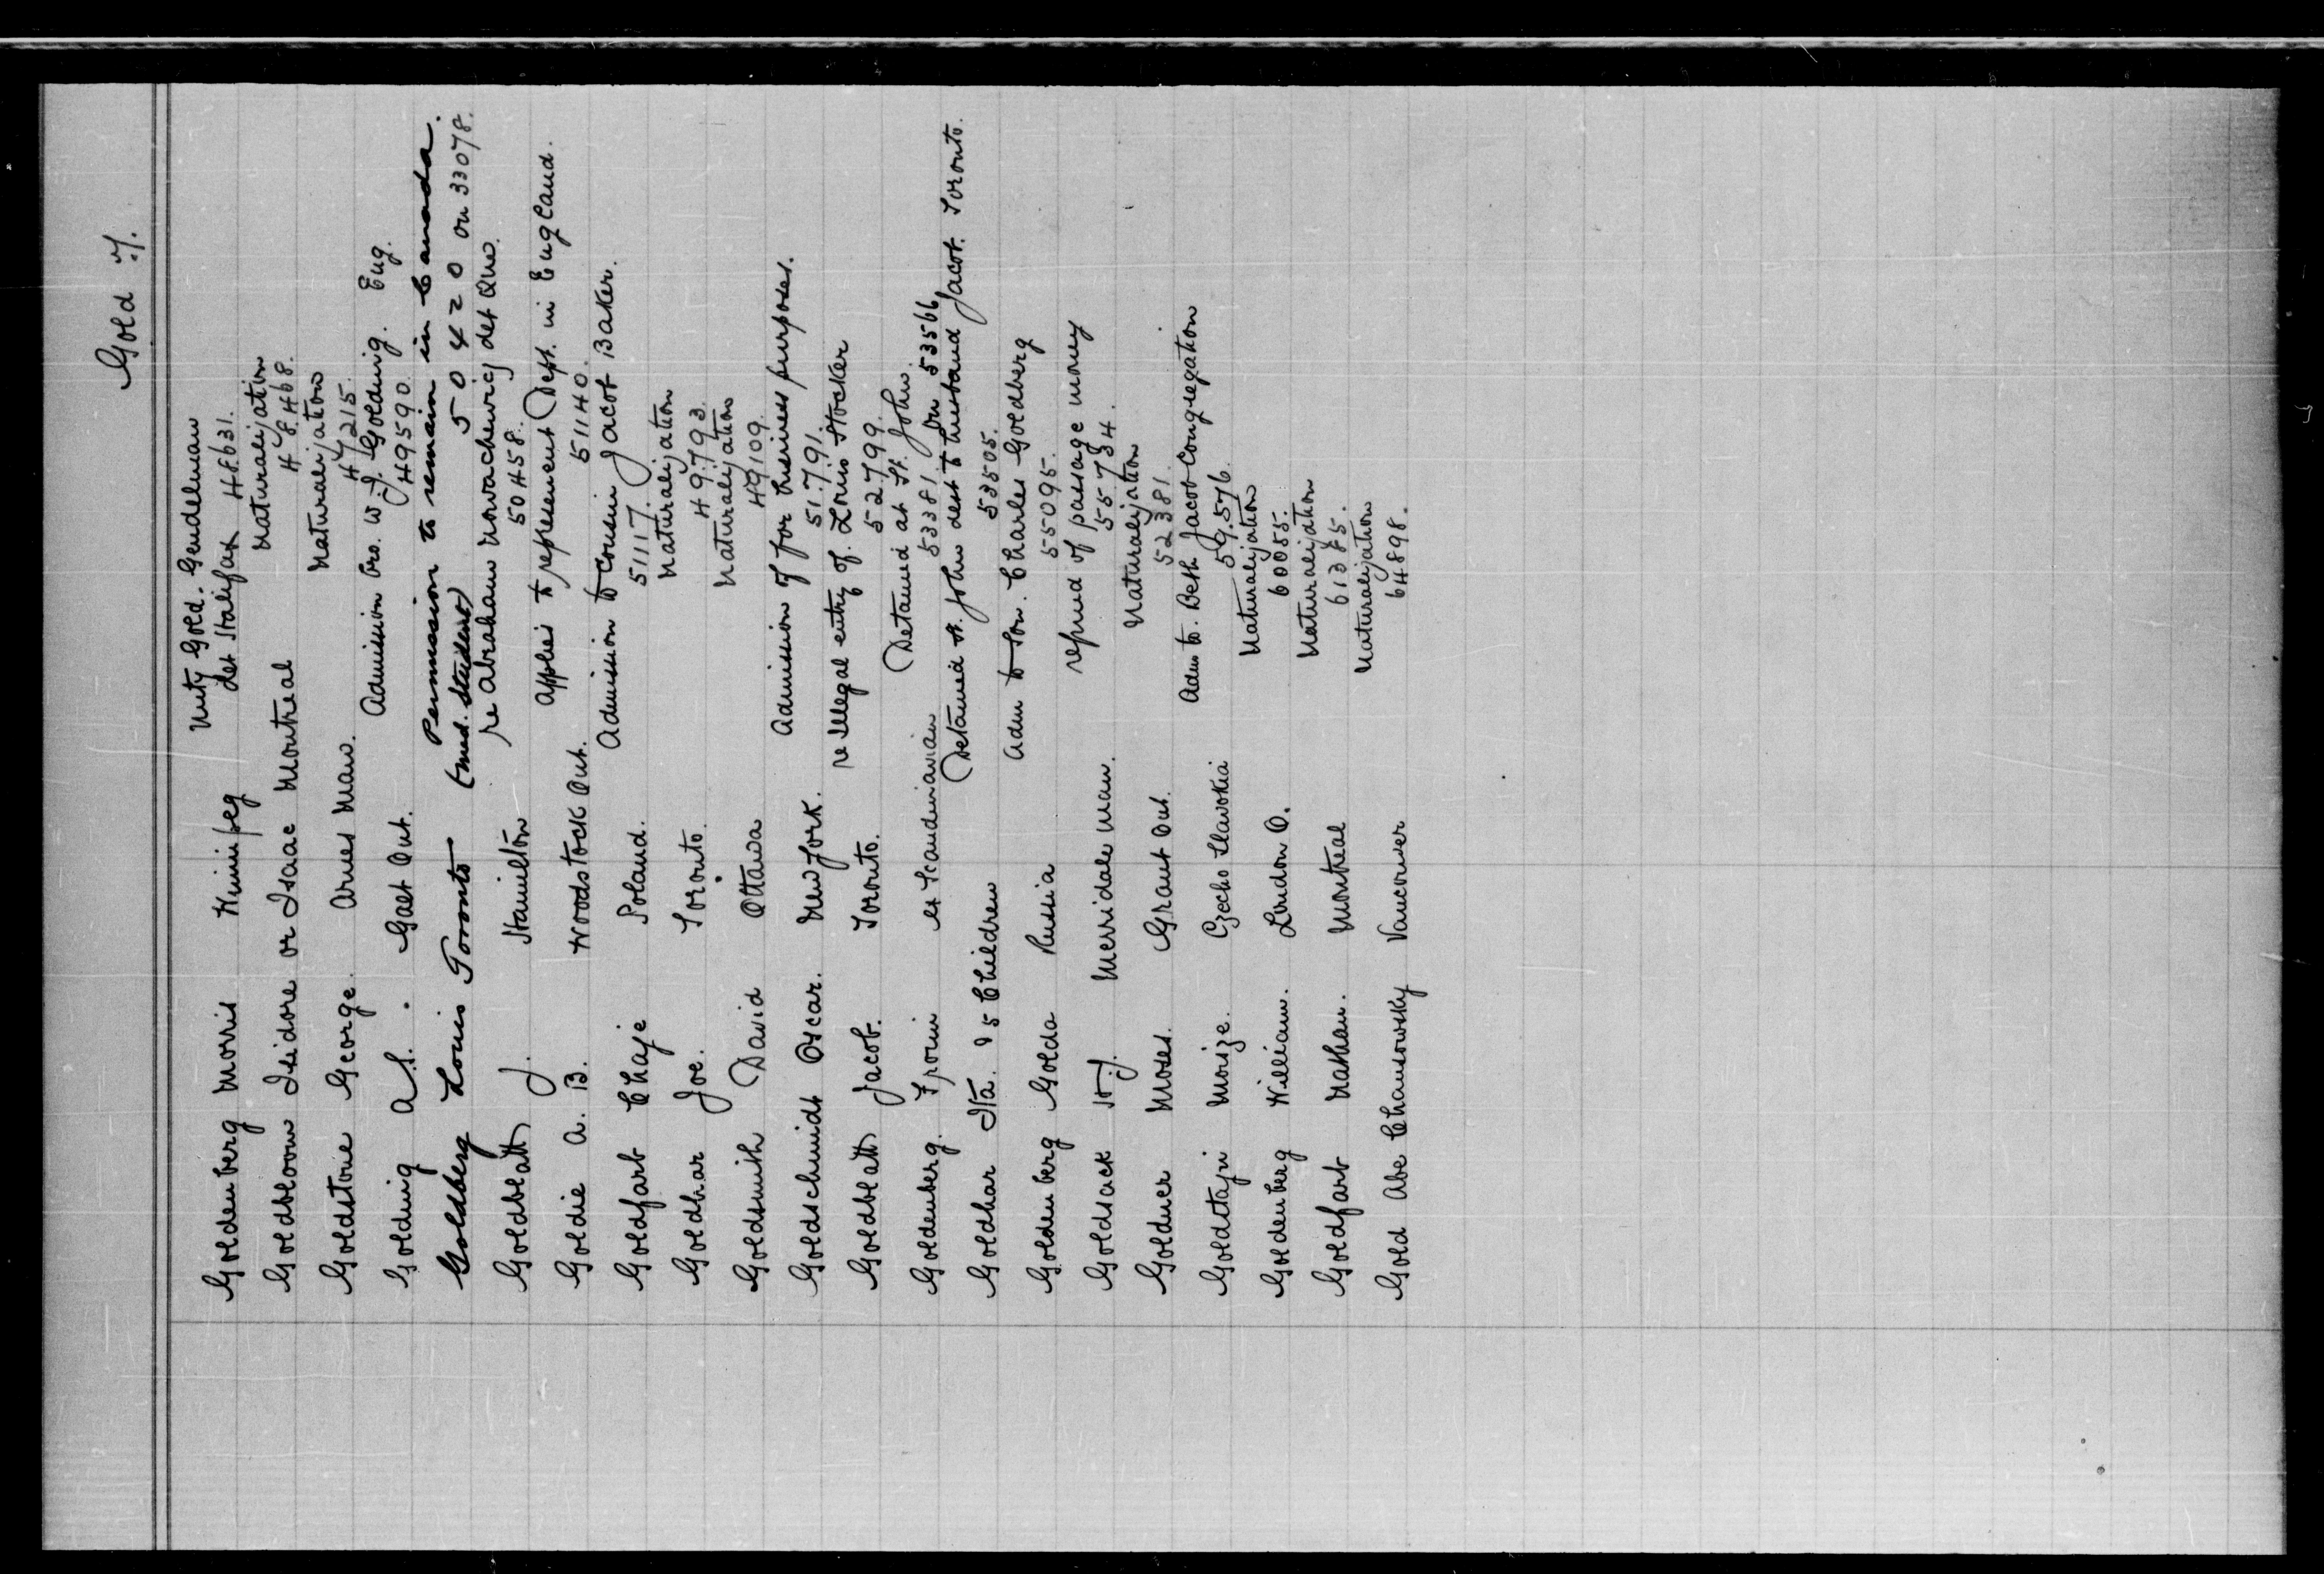 Gold 7.
Goldenberg Morris Winnipeg Unty Gold. Gendelman
det Halifax 48631.
Goldbloom Isidore or Isaac Montreal Naturalization
48468.
Goldstone George. Arnes Man. Naturalization
47215.
Golding A.S. Galt Ont. Admission bro. W.J. Golding. Eng.
49590.
Goldberg Louis Toronto Permission to remain in Canada.
(med. student) 50420 on 33078.
Goldblatt J. Hamilton re Abraham Nowachewicz det Que.
50458.
Goldie A. B. Woodstock Ont. Applies to represent Dept. in England.
51140.
Goldfarb Chaje Poland. Admission to cousin Jacob Baker.
51117.
Goldhar Joe. Toronto. Naturalization
49793.
Goldsmith David Ottawa Naturalization
49109.
Goldschmidt Oscar. New York. Admission of for business purposes.
51791.
Goldblatt Jacob. Toronto. re Illegal entry of Louis Stocker
52799.
Goldenberg. Froim ex Scandinavian Detained at St. John.
53381 on 53566
Goldhar Ita. & 5 Children Detained St. John dest to husband Jacob. Toronto.
53505.
Goldenberg Golda Russia Adm to son. Charles Goldberg
55095.
Goldsack H.J. Merridale Man. refund of passage money
55734.
Goldner Moses. Grant Ont. Naturalization
52381.
Moize. Czecho Slavokia Adm to. Beth Jacob Congregation
59576.
Goldenberg William. London O. Naturalization
60055.
Goldfarb Nathan. Montreal Naturalization
61385.
Gold Abe Chanowsky Vancouver Naturalization
64898.